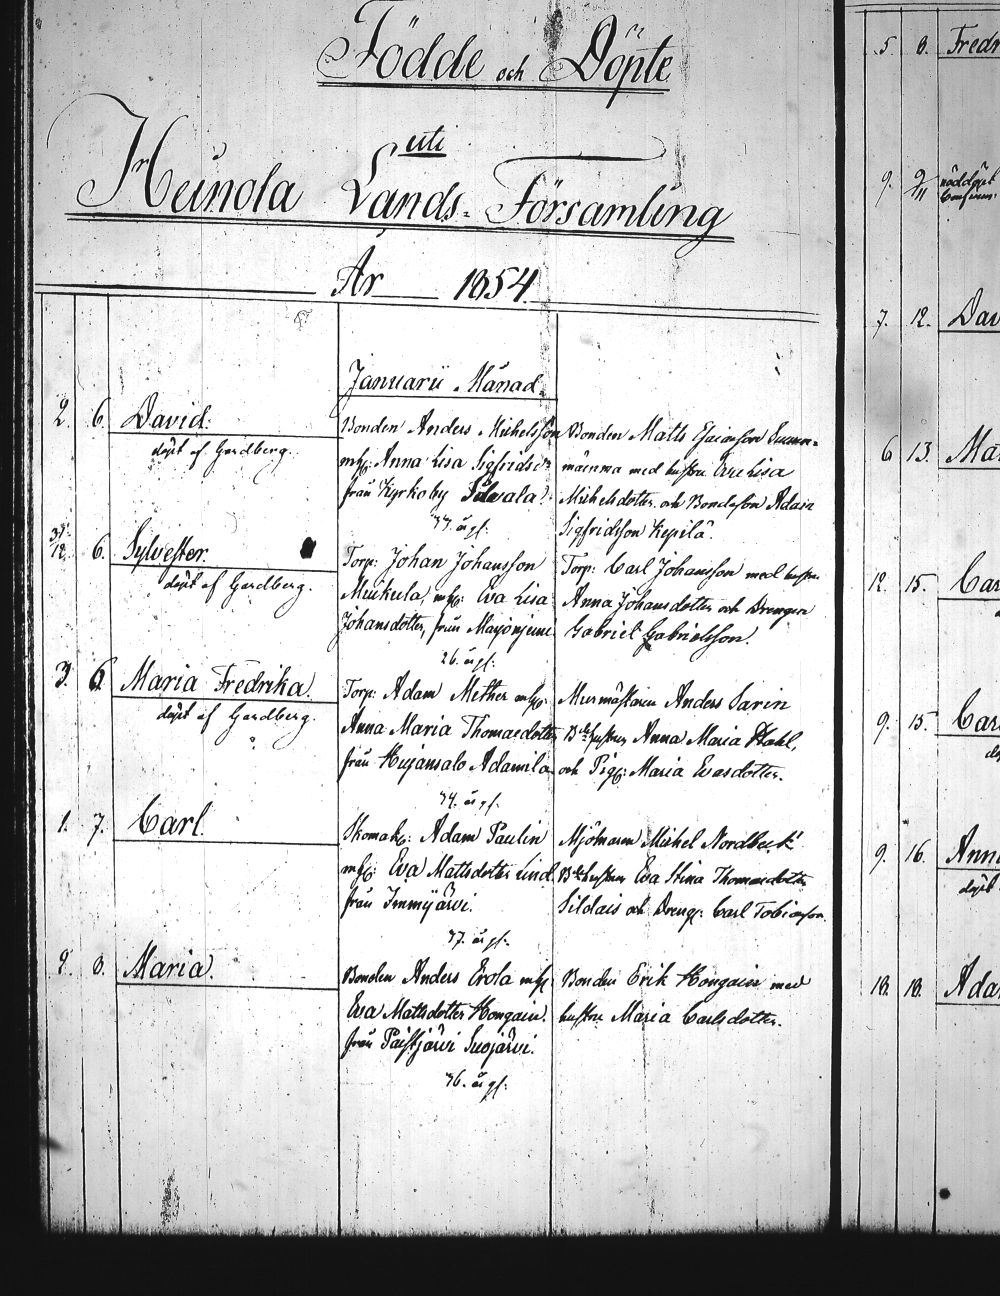 Födde och Döpte
uti
Heinola Lands-Församling
År 1854
Januarii Månad.
2. 6. David.
döpt af Gardberg.
Bonden Anders Michelsson
mhu: Anna Lisa Sigfridsdr
från Kyrkoby Silvala.
Bonden Matts Esaiasson
med hustru Eva Lisa
Michelsdotter och Bondeson Adam
Sigfridsson Kepilä.
31/12. 6. Sylvester.
döpt af Gardberg.
Torp: Johan Johansson
Muikula, mhu: Eva Lisa
Johansdotter, från Marjoniemi
26. år gl:
Torp: Carl Johansson med hustru
Anna Johansdotter och Drengen
Gabriel Gabrielsson.
3. 6. Maria Fredrika.
döpt af Gardberg.
Torp: Adam Mether mhu:
Anna Maria Thomasdotter
från Hujansalo Adamila.
34. år gl.
Murmästaren Anders Sarin
Bdehustrun Anna Maria Stahl,
och Pig: Maria Evasdotter.
1. 7. Carl.
Skomak: Adam Paulin
mhu: Eva Mattsdotter Lind.
från Immijärvi.
37. år gl.
Mjölnaren Michel Nordbeck
Bdehustrun Eva Stina Thomasdotter
och Dreng: Carl Tobiasson.
8. Maria.
Bonden Anders Erola mhu
Eva Mattsdotter Hongain.
från Paistjärvi Suojärvi.
36. år gl:
Bonden Erik Hongain med
hustru Maria Carlsdotter.
5 8. Fredri
9. nöddöpt
7. 12. Dav
6 13. Mar
12. 15. Car
9. 15. Car
9. 16. Anna
döpt
18. 18. Adam